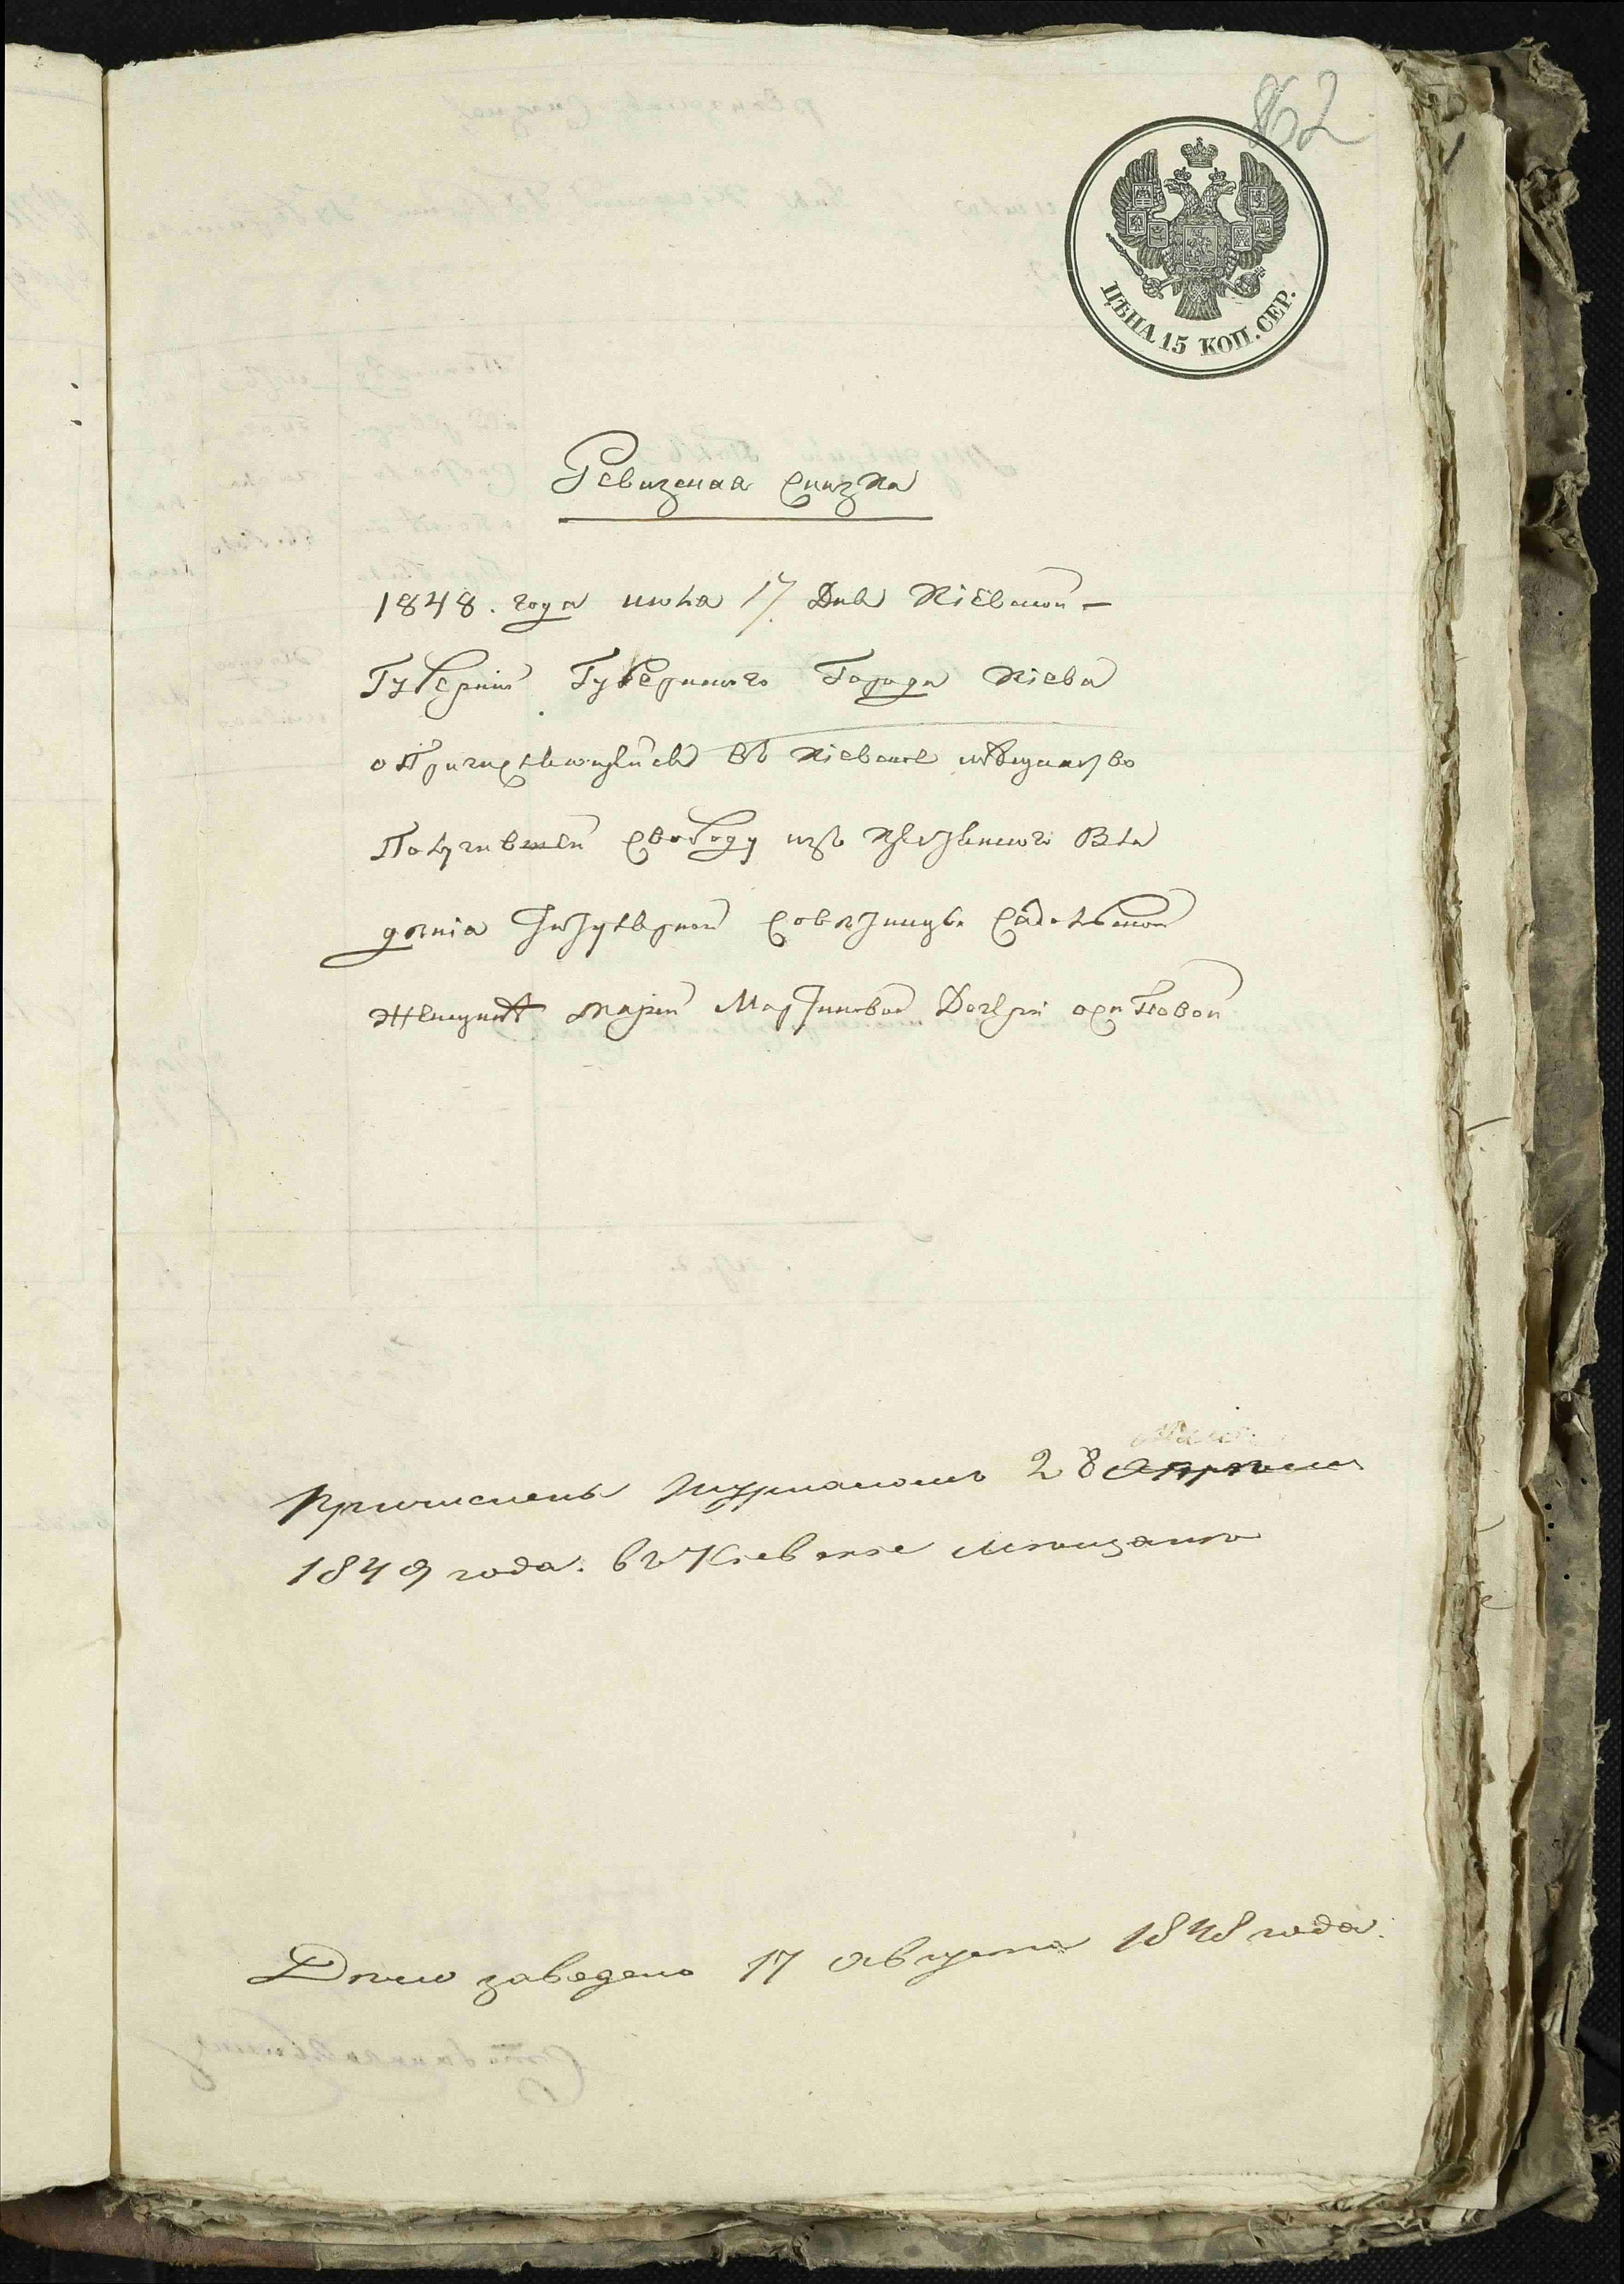 862
ЦѢНА 15 КОП. СЕР.
Ревизская Сказка
1848. года июля 17. Дня Кіевской
Губерніи Губернского Города Кіева
о Причисляющейся въ Кіевское мѣщанство
Получившей Свободу изъ крестьянского Вла
дѣнія Титулярной Совѣтницы
женщинѣ Маріи Мартиновой Дочери Осиповой
Причислена Журналомъ 28 Апрѣля
Маія
1849 года. въ Кіевское мѣщанство
Дѣло заведено 17 Августа 1848 года.